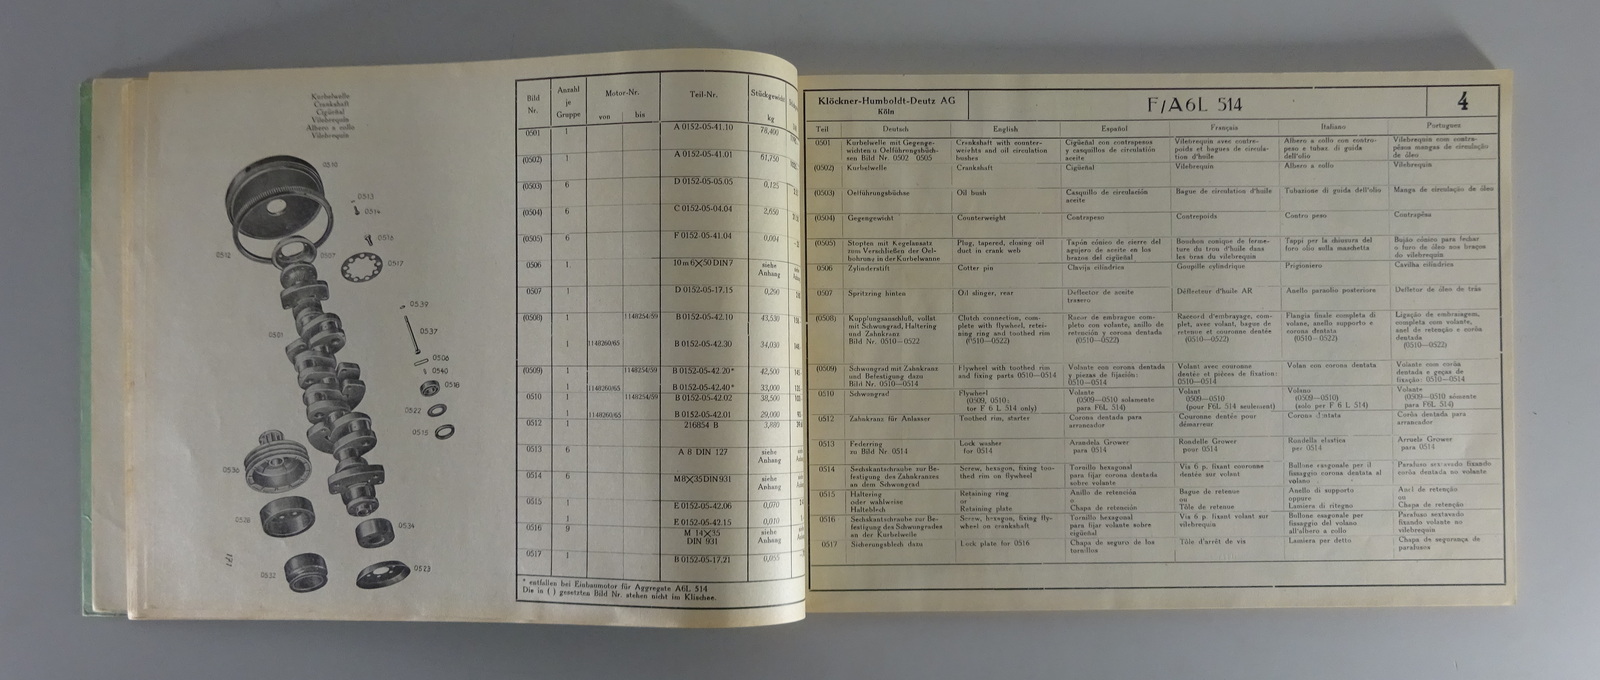 Kurbelwelle
Crankshaft
Cigüeñal
Vilebrequin
Albero a collo
Vilebrequin
0510
0513
0514
0516
0507
0517
0512
0539
0501
0537
0506
0540
0518
0522
0515
0536
0528
0534
0532
0523
171
Bild Nr. Anzahl je Gruppe Motor-Nr. von bis Teil-Nr. Stückgewicht kg
0501 1 A 0152-05-41.10 78,400
(0502) 1 A 0152-05-41.01 61,750
(0503) 6 D 0152-05-05.05 0,125
(0504) 6 C 0152-05-04.04 2,650
(0505) 6 F 0152-05-41.04 0,004
0506 1 10 m 6X50 DIN 7 siehe Anhang
0507 1 D 0152-05-17.15 0,290
(0508) 1 1148254/59 B 0152-05-42.10 43,530
1 1148260/65 B 0152-05-42.30 34,030
(0509) 1 1148254/59 B 0152-05-42.20* 42,500
1 1148260/65 B 0152-05-42.40* 33,000
0510 1 1148254/59 B 0152-05-42.02 38,500
1 1148260/65 B 0152-05-42.01 29,000
0512 1 216854 B 3,880
0513 6 A 8 DIN 127 siehe Anhang
0514 6 M8X35 DIN 931 siehe Anhang
0515 1 E 0152-05-42.06 0,070
1 E 0152-05-42.15 0,010
0516 9 M 14X35 DIN 931 siehe Anhang
0517 1 B 0152-05-17.21 0,055
* entfallen bei Einbaumotor für Aggregate A6L 514
Die in ( ) gesetzten Bild Nr. stehen nicht im Klischee.
Klöckner-Humboldt-Deutz AG
Köln
F/A6L 514
4
Teil Deutsch English Español Français Italiano Portugues
0501 Kurbelwelle mit Gegenge- Crankshaft with counter- Cigüeñal con contrapesos Vilebrequin avec contre- Albero a collo con contro- Vilebrequin com contra-
wichten u Oelführungsbüch- weights and oil circulation y casquillos de circulatión poids et bagues de circula- peso e tubaz. di guida pêsos mangas de circulação
sen Bild Nr. 0502 0505 bushes aceite tion d'huile dell'olio de óleo
(0502) Kurbelwelle Crankshaft Cigüeñal Vilebrequin Albero a collo Vilebrequin
(0503) Oelführungsbüchse Oil bush Casquillo de circulación Bague de circulation d'huile Tubazione di guida dell'olio Manga de circulação de óleo
aceite
(0504) Gegengewicht Counterweight Contrapeso Contrepoids Contro peso Contrapêso
(0505) Stopfen mit Kegelansatz Plug, tapered, closing oil Tapón cónico de cierre del Bouchon conique de ferme- Tappi per la chiusura del Bujão cónico para fechar
zum Verschließen der Oel- duct in crank web agujero de aceite en los ture du trou d'huile dans foro olio sulla maschetta o furo de óleo nos braços
bohrung in der Kurbelwanne brazos del cigüeñal les bras du vilebrequin do vilebrequin
0506 Zylinderstift Cotter pin Clavija cilíndrica Goupille cylindrique Prigioniero Cavilha cilíndrica
0507 Spritzring hinten Oil slinger, rear Deflector de aceite Déflecteur d'huile AR Anello paraolio posteriore Defletor de óleo de trás
trasero
(0508) Kupplungsanschluß, vollst. Clutch connection, com- Racor de embrague com- Raccord d'embrayage, com- Flangia finale completa di Ligação da embraiagem,
mit Schwungrad, Haltering plete with flywheel, retei- pleto con volante, anillo de plet, avec volant, bague de volano, anello supporto e completa com volante,
und Zahnkranz ning ring and toothed rim retención y corona dentada retenue et couronne dentée corona dentata anel de retenção e corôa
Bild Nr. 0510-0522 (0510—0522) (0510—0522) (0510—0522) (0510—0522) dentada
(0510—0522)
(0509) Schwungrad mit Zahnkranz Flywheel with toothed rim Volante con corona dentada Volant avec couronne Volan con corona dentata Volante com corôa
und Befestigung dazu and fixing parts 0510—0514 y piezas de fijación: dentée et pièces de fixation: dentada e peças de
Bild Nr. 0510—0514 0510—0514 0510—0514 fixação: 0510—0514
0510 Schwungrad Flywheel Volante Volant Volano Volante
(0509, 0510; (0509—0510 solamente 0509—0510 (0509—0510) (0509—0510 sòmente
for F 6 L 514 only) para F6L 514) (pour F6L 514 seulement) (solo per F 6 L 514) para F6L 514)
0512 Zahnkranz für Anlasser Toothed rim, starter Corona dentada para Couronne dentée pour Corona dentata Corôa dentada para
arrancador démarreur arrancador
0513 Federring Lock washer Arandela Grower Rondelle Grower Rondella elastica Arruela Grower
zu Bild Nr 0514 for 0514 para 0514 pour 0514 per 0514 para 0514
0514 Sechskantschraube zur Be- Screw, hexagon, fixing too- Tornillo hexagonal Vis 6 p. fixant couronne Bullone esagonale per il Parafuso sextavado fixando
festigung des Zahnkranzes thed rim on flywheel para fijar corona dentada dentée sur volant fissaggio corona dentata al corôa dentada no volante
an dem Schwungrad sobre volante volano
0515 Haltering Retaining ring Anillo de retención Bague de retenue Anello di supporto Anel de retenção
oder wahlweise or o ou oppure ou
Halteblech Retaining plate Chapa de retención Tôle de retenue Lamiera di ritegno Chapa de retenção
0516 Sechskantschraube zur Be- Screw, hexagon, fixing fly- Tornillo hexagonal Vis 6 p. fixant volant sur Bullone esagonale per Parafuso sextavado
festigung des Schwungrades wheel on crankshaft para fijar volante sobre vilebrequin fissaggio del volano fixando volante no
an der Kurbelwelle cigüeñal all'albero a collo vilebrequin
0517 Sicherungsblech dazu Lock plate for 0516 Chapa de seguro de los Tôle d'arrêt de vis Lamiera per detto Chapa de segurança de
tornillos parafusos